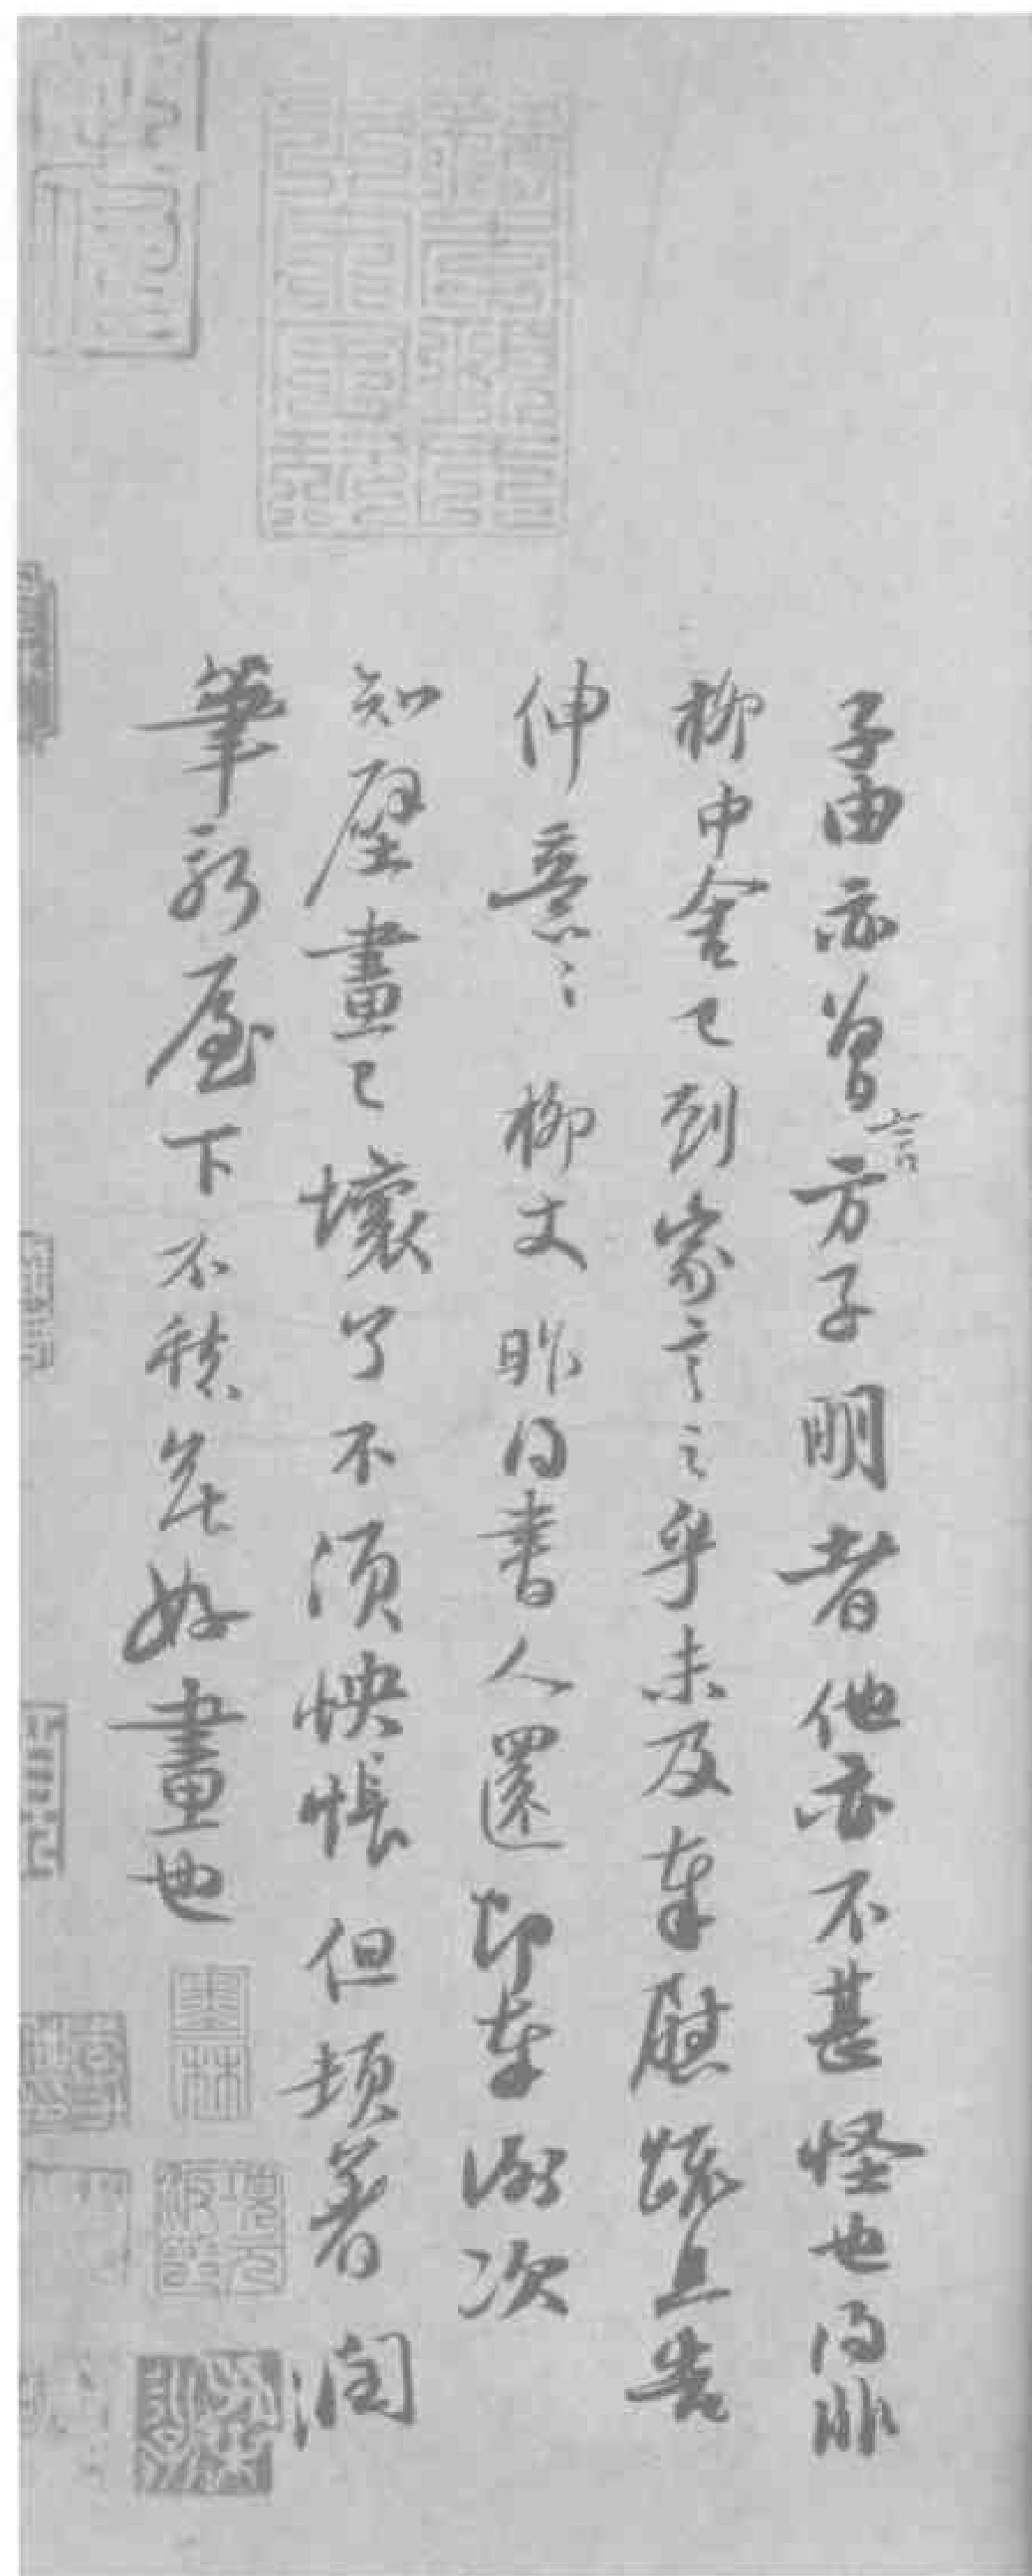 子由亦曾言方子明者他亦不甚怪也得非
柳中舍已到家言之乎未及奉慰疏且告
伸意〻柳丈昨得書人還即奉謝次
知壁畫已壞了不須怏悵但頓著潤
筆新屋下不愁無好畫也
墨林